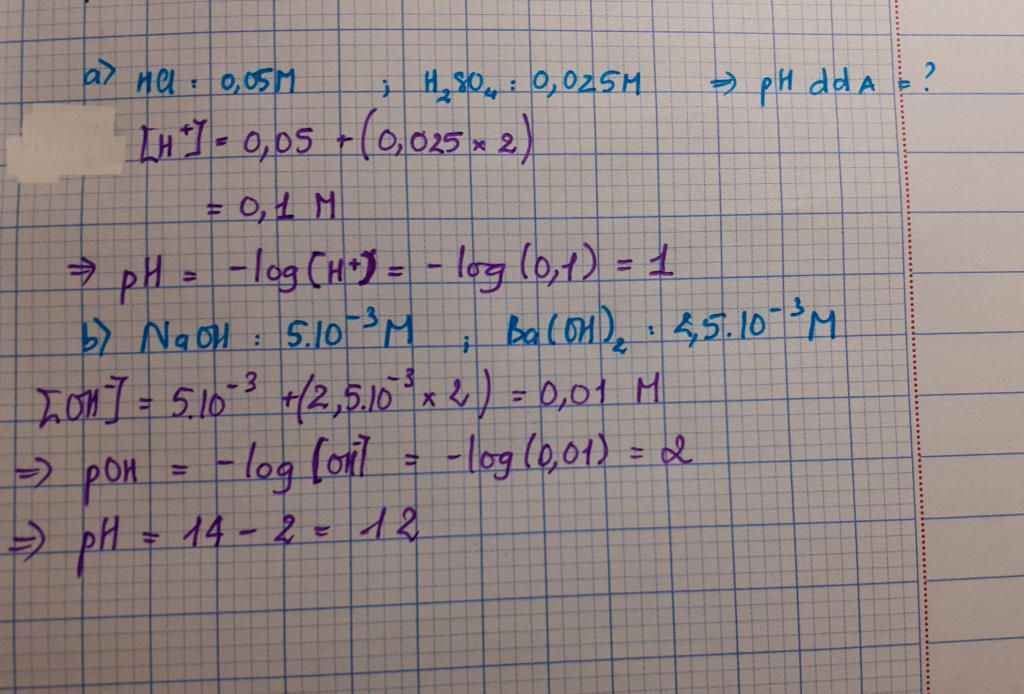 a) HCl : 0,05M ; H₂SO₄ : 0,025M ⇒ pH ddA = ?
[H⁺] = 0,05 + (0,025 × 2)
= 0,1 M
⇒ pH = -log[H⁺] = -log(0,1) = 1
b) NaOH : 5.10⁻³M ; Ba(OH)₂ : 2,5.10⁻³M
[OH⁻] = 5.10⁻³ + (2,5.10⁻³ × 2) = 0,01 M
⇒ pOH = -log[OH⁻] = -log(0,01) = 2
⇒ pH = 14 - 2 = 12